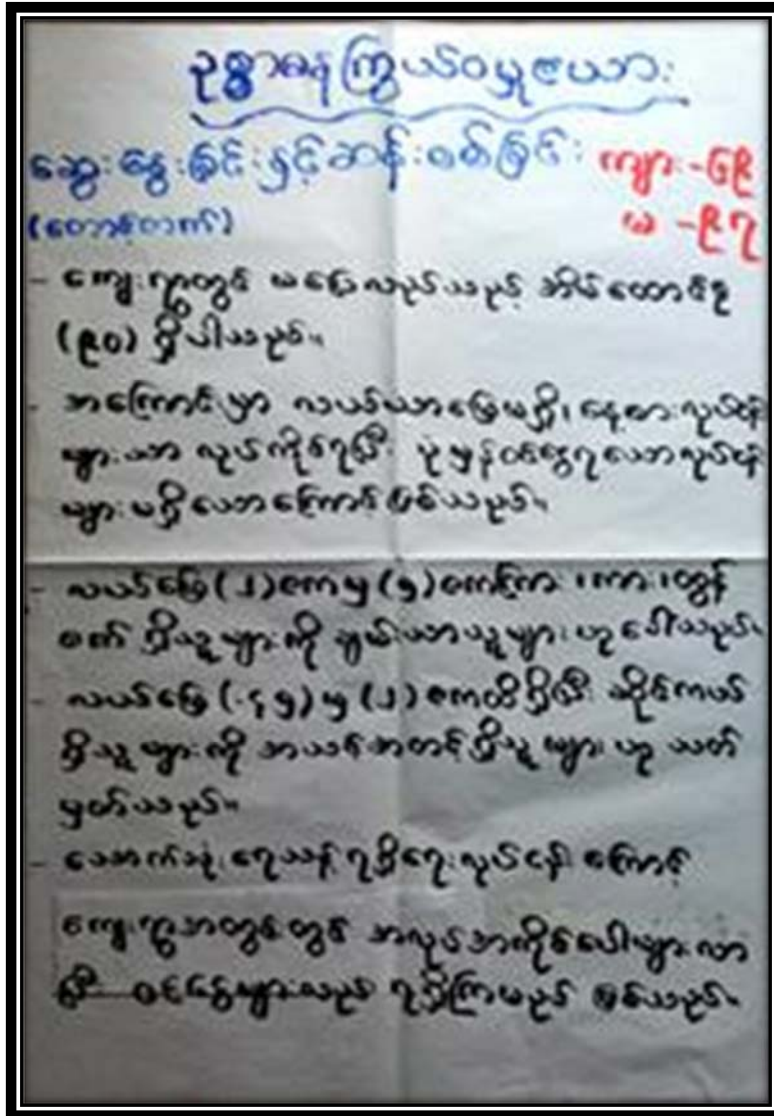 ဥစ္စာဓနကြွယ်ဝမှုဇယား
ဆွေးနွေးခြင်းနှင့်ဆန်းစစ်ခြင်း ကျား-၆၉
(တောင်တက်) မ -၉၇
- ကျေးရွာတွင် မပြေလည်သည့် အိမ်ထောင်စု
(၉၀) ရှိပါသည်။
- အကြောင်းမှာ လယ်ယာမြေမရှိ၊ နေ့စားလုပ်ငန်း
များသာ လုပ်ကိုင်ရပြီး ပုံမှန်ဝင်ငွေရသောလုပ်ငန်း
များ မရှိသောကြောင့်ဖြစ်သည်။
- လယ်မြေ (၂) ဧကမှ (၅) ဧကကြား၊ ကား၊ ထွန်
စက် ရှိသူများကို ချမ်းသာသူများ ဟု ခေါ်သည်။
- လယ်မြေ (.၄၅) မှ (၂) ဧကထိရှိပြီး ဆိုင်ကယ်
ရှိသူများကို အသင့်အတင့်ရှိသူများ ဟု သတ်
မှတ်သည်။
- သောက်သုံးရေသန့် ရရှိရေးလုပ်ငန်း ကြောင့်
ကျေးရွာအတွင်းတွင် အလုပ်အကိုင်ပေါများလာ
ပြီး ဝင်ငွေများလည်း ရရှိကြမည် ဖြစ်သည်။